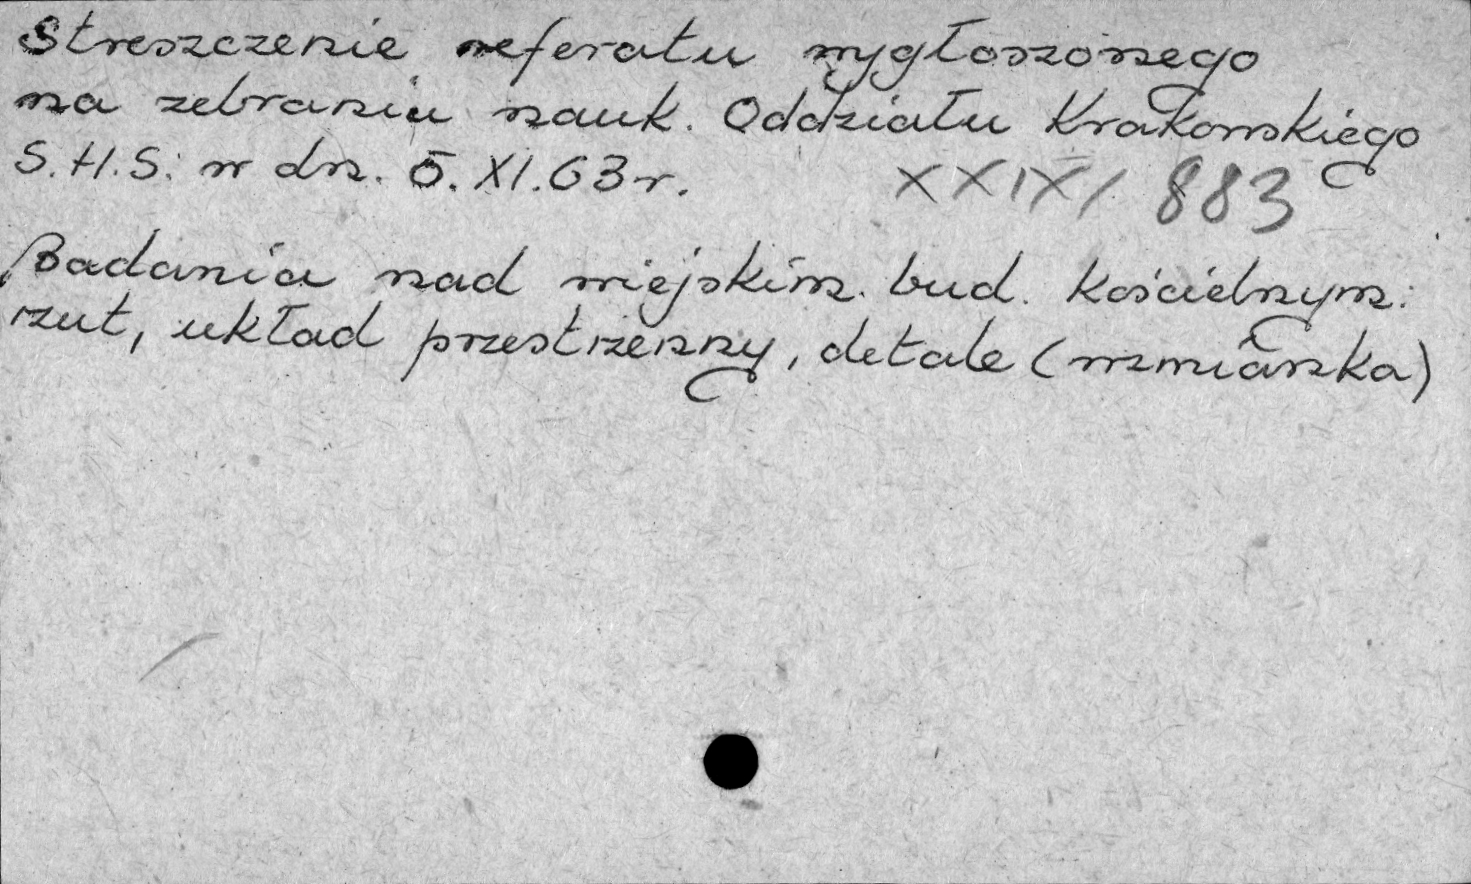 Streszczenie referatu wygłoszonego
na zebraniu nauk. Oddziału Krakowskiego
S.H.S. w dn. 5. XI. 63 r. XXIX/ 883
Badania nad miejskim. bud. kościelnym:
rzut, układ przestrzenny, detale (wzmianka)